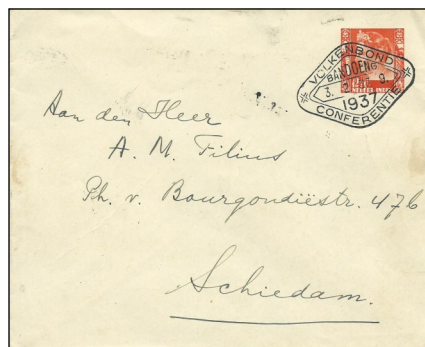 VOLKENBOND
BANDOENG
3. 2. 37. 9
1937
CONFERENTIE
Aan den Heer
A. M. Filius
Ph. v. Bourgondiëstr. 47b
Schiedam.